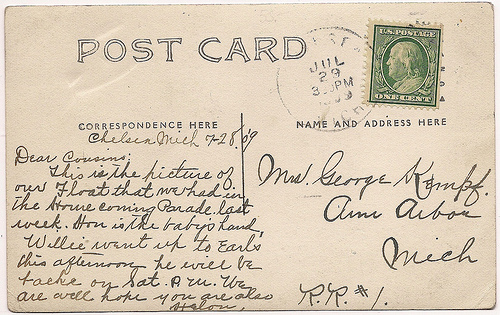 POST CARD
JUL
29
3 PM
U.S. POSTAGE
ONE CENT
CORRESPONDENCE HERE
NAME AND ADDRESS HERE
Chelsea Mich 7-28, '09
Dear Cousins,
This is the picture of
our Float that we had in
the Home coming Parade last
week. How is the baby's hand,
Willie went up to Earl's
this afternoon he will be
back on Sat. P.M. We
are well hope you are also
Mrs. George Kempf.
Ann Arbor
Mich
R.R. #1.